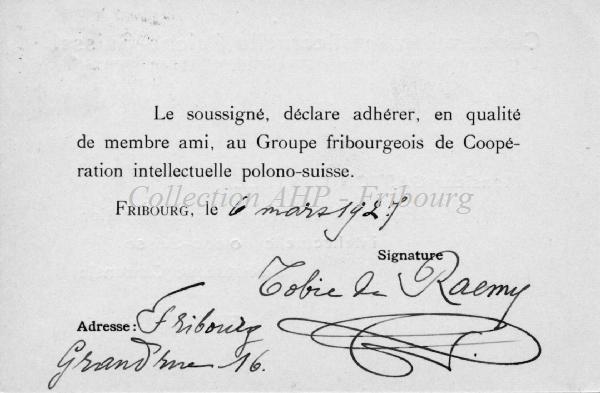 Le soussigné, déclare adhérer, en qualité
de membre ami, au Groupe fribourgeois de Coopé-
ration intellectuelle polono-suisse.
Collection AHP - Fribourg
FRIBOURG, le 6 mars 1927
Signature
Tobie de Raemy
Adresse: Fribourg
Grand'rue 16.